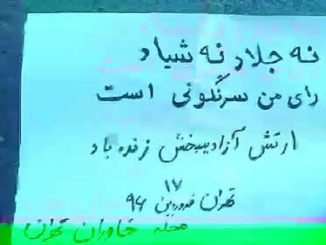 نه جلاد نه شیاد
رای من سرنگونی است
ارتش آزادیبخش زنده باد
۱۷
تهران فروردین ۹۶
محله خاوران تهران